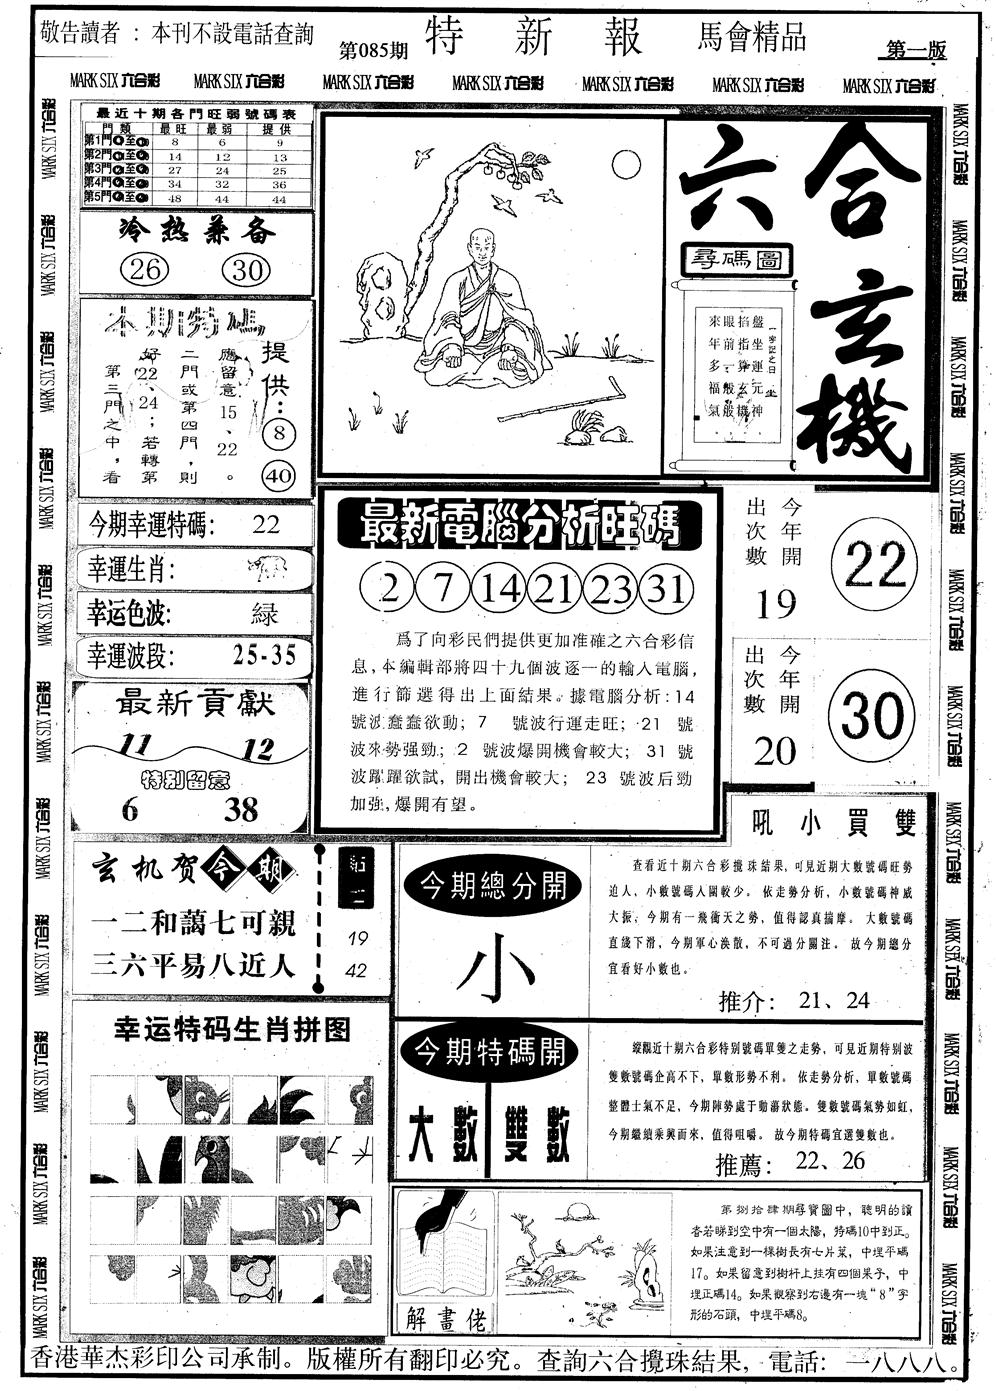 敬告讀者：本刊不設電話查詢
第085期
特新報
馬會精品
第一版
MARK SIX 六合彩 MARK SIX 六合彩 MARK SIX 六合彩 MARK SIX 六合彩 MARK SIX 六合彩 MARK SIX 六合彩 MARK SIX 六合彩
最近十期各門旺弱號碼表
門類 最旺 最弱 提供
第1門 8 6 9
第2門 14 12 13
第3門 27 24 25
第4門 34 32 36
第5門 48 44 44
冷热兼备
26 30
本期特碼
提供：
8
40
應留意15、22。
二門或第四門，則
好22、24；若轉第
第三門之中，看
今期幸運特碼： 22
幸運生肖：
幸运色波： 緑
幸運波段： 25-35
最新貢獻
11 12
特别留意
6 38
六合玄機
尋碼圖
盤坐運元神
掐指算玄機
眼前一般般
來年多福氣
最新電腦分析旺碼
2 7 14 21 23 31
爲了向彩民們提供更加准確之六合彩信
息，本編輯部將四十九個波逐一的輸入電腦，
進行篩選得出上面結果。據電腦分析：14
號波蠢蠢欲動；7 號波行運走旺；21 號
波來勢强勁；2 號波爆開機會較大；31 號
波躍躍欲試，開出機會較大；23 號波后勁
加強，爆開有望。
今年開
出次數
19
22
今年開
出次數
20
30
玄机贺今期
一二和藹七可親
三六平易八近人
19
42
今期總分開
小
吼小買雙
查看近十期六合彩攪珠結果，可見近期大數號碼旺勢
迫人，小數號碼入圍較少。依走勢分析，小數號碼神威
大振，今期有一飛衝天之勢，值得認真揣摩。大數號碼
直綫下滑，今期軍心渙散，不可過分關注。故今期總分
宜看好小數也。
推介： 21、24
今期特碼開
大數 雙數
縱觀近十期六合彩特别號碼單雙之走勢，可見近期特别波
雙數號碼企高不下，單數形勢不利。依走勢分析，單數號碼
整體士氣不足，今期陣勢處于動蕩狀態。雙數號碼氣勢如虹，
今期繼續乘興而來，值得咀嚼。故今期特碼宜選雙數也。
推薦： 22、26
幸运特码生肖拼图
解畫佬
第捌拾肆期尋寶圖中，聰明的讀
者若睇到空中有一個太陽，特碼10中到正。
如果注意到一棵樹長有七片葉，中埋平碼
17。如果留意到樹杆上挂有四個果子，中
埋正碼14。如果觀察到右邊有一塊“8”字
形的石頭，中埋平碼8。
香港華杰彩印公司承制。版權所有翻印必究。查詢六合攪珠結果，電話：一八八八。